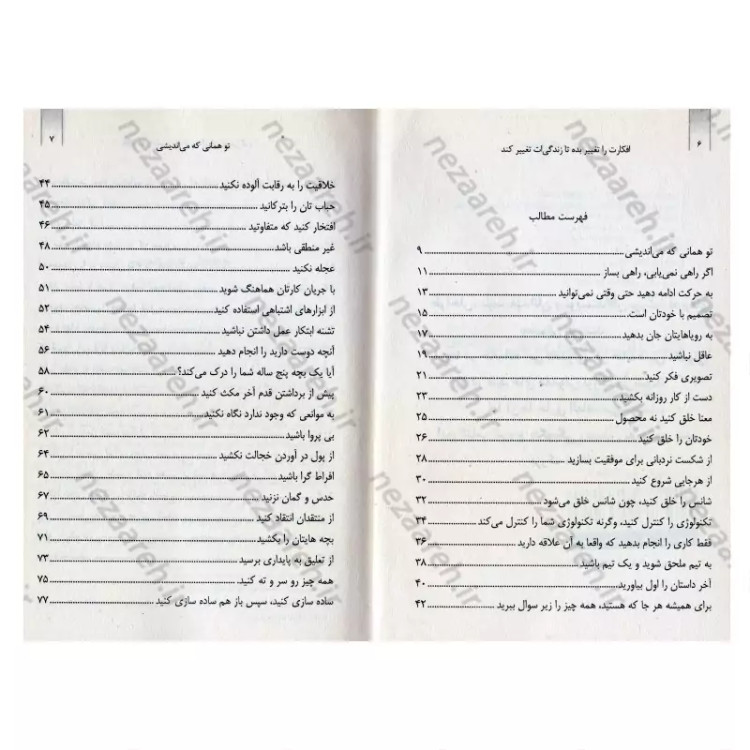 ۶
افکارت را تغییر بده تا زندگی‌ات تغییر کند
فهرست مطالب
تو همانی که می‌اندیشی ۹
اگر راهی نمی‌یابی، راهی بساز ۱۱
به حرکت ادامه دهید حتی وقتی نمی‌توانید ۱۳
تصمیم با خودتان است. ۱۵
به رویاهایتان جان بدهید ۱۷
عاقل نباشید ۱۹
تصویری فکر کنید ۲۱
دست از کار روزانه بکشید ۲۳
معنا خلق کنید نه محصول ۲۵
خودتان را خلق کنید ۲۶
از شکست نردبانی برای موفقیت بسازید ۲۸
از هرجایی شروع کنید ۳۰
شانس را خلق کنید، چون شانس خلق می‌شود ۳۲
تکنولوژی را کنترل کنید، وگرنه تکنولوژی شما را کنترل می‌کند ۳۴
فقط کاری را انجام بدهید که واقعا به آن علاقه دارید ۳۶
به تیم ملحق شوید و یک تیم باشید ۳۸
آخر داستان را اول بیاورید ۴۰
برای همیشه هر جا که هستید، همه چیز را زیر سوال ببرید ۴۲
۷
تو همانی که می‌اندیشی
خلاقیت را به رقابت آلوده نکنید ۴۴
حباب تان را بترکانید ۴۵
افتخار کنید که متفاوتید ۴۶
غیر منطقی باشد ۴۸
عجله نکنید ۵۰
با جریان کارتان هماهنگ شوید ۵۱
از ابزارهای اشتباهی استفاده کنید ۵۲
تشنه ابتکار عمل داشتن نباشید ۵۴
آنچه دوست دارید را انجام دهید ۵۶
آیا یک بچه پنج ساله شما را درک می‌کند؟ ۵۸
پیش از برداشتن قدم آخر مکث کنید ۶۰
به موانعی که وجود ندارد نگاه نکنید ۶۱
بی پروا باشید ۶۲
از پول در آوردن خجالت نکشید ۶۴
افراط گرا باشید ۶۵
حدس و گمان نزنید ۶۷
از منتقدان انتقاد کنید ۶۹
بچه هایتان را بکشید ۷۱
از تعلیق به پایداری برسید ۷۳
همه چیز رو سر و ته کنید. ۷۵
ساده سازی کنید، سپس باز هم ساده سازی کنید ۷۷
nezaareh.ir